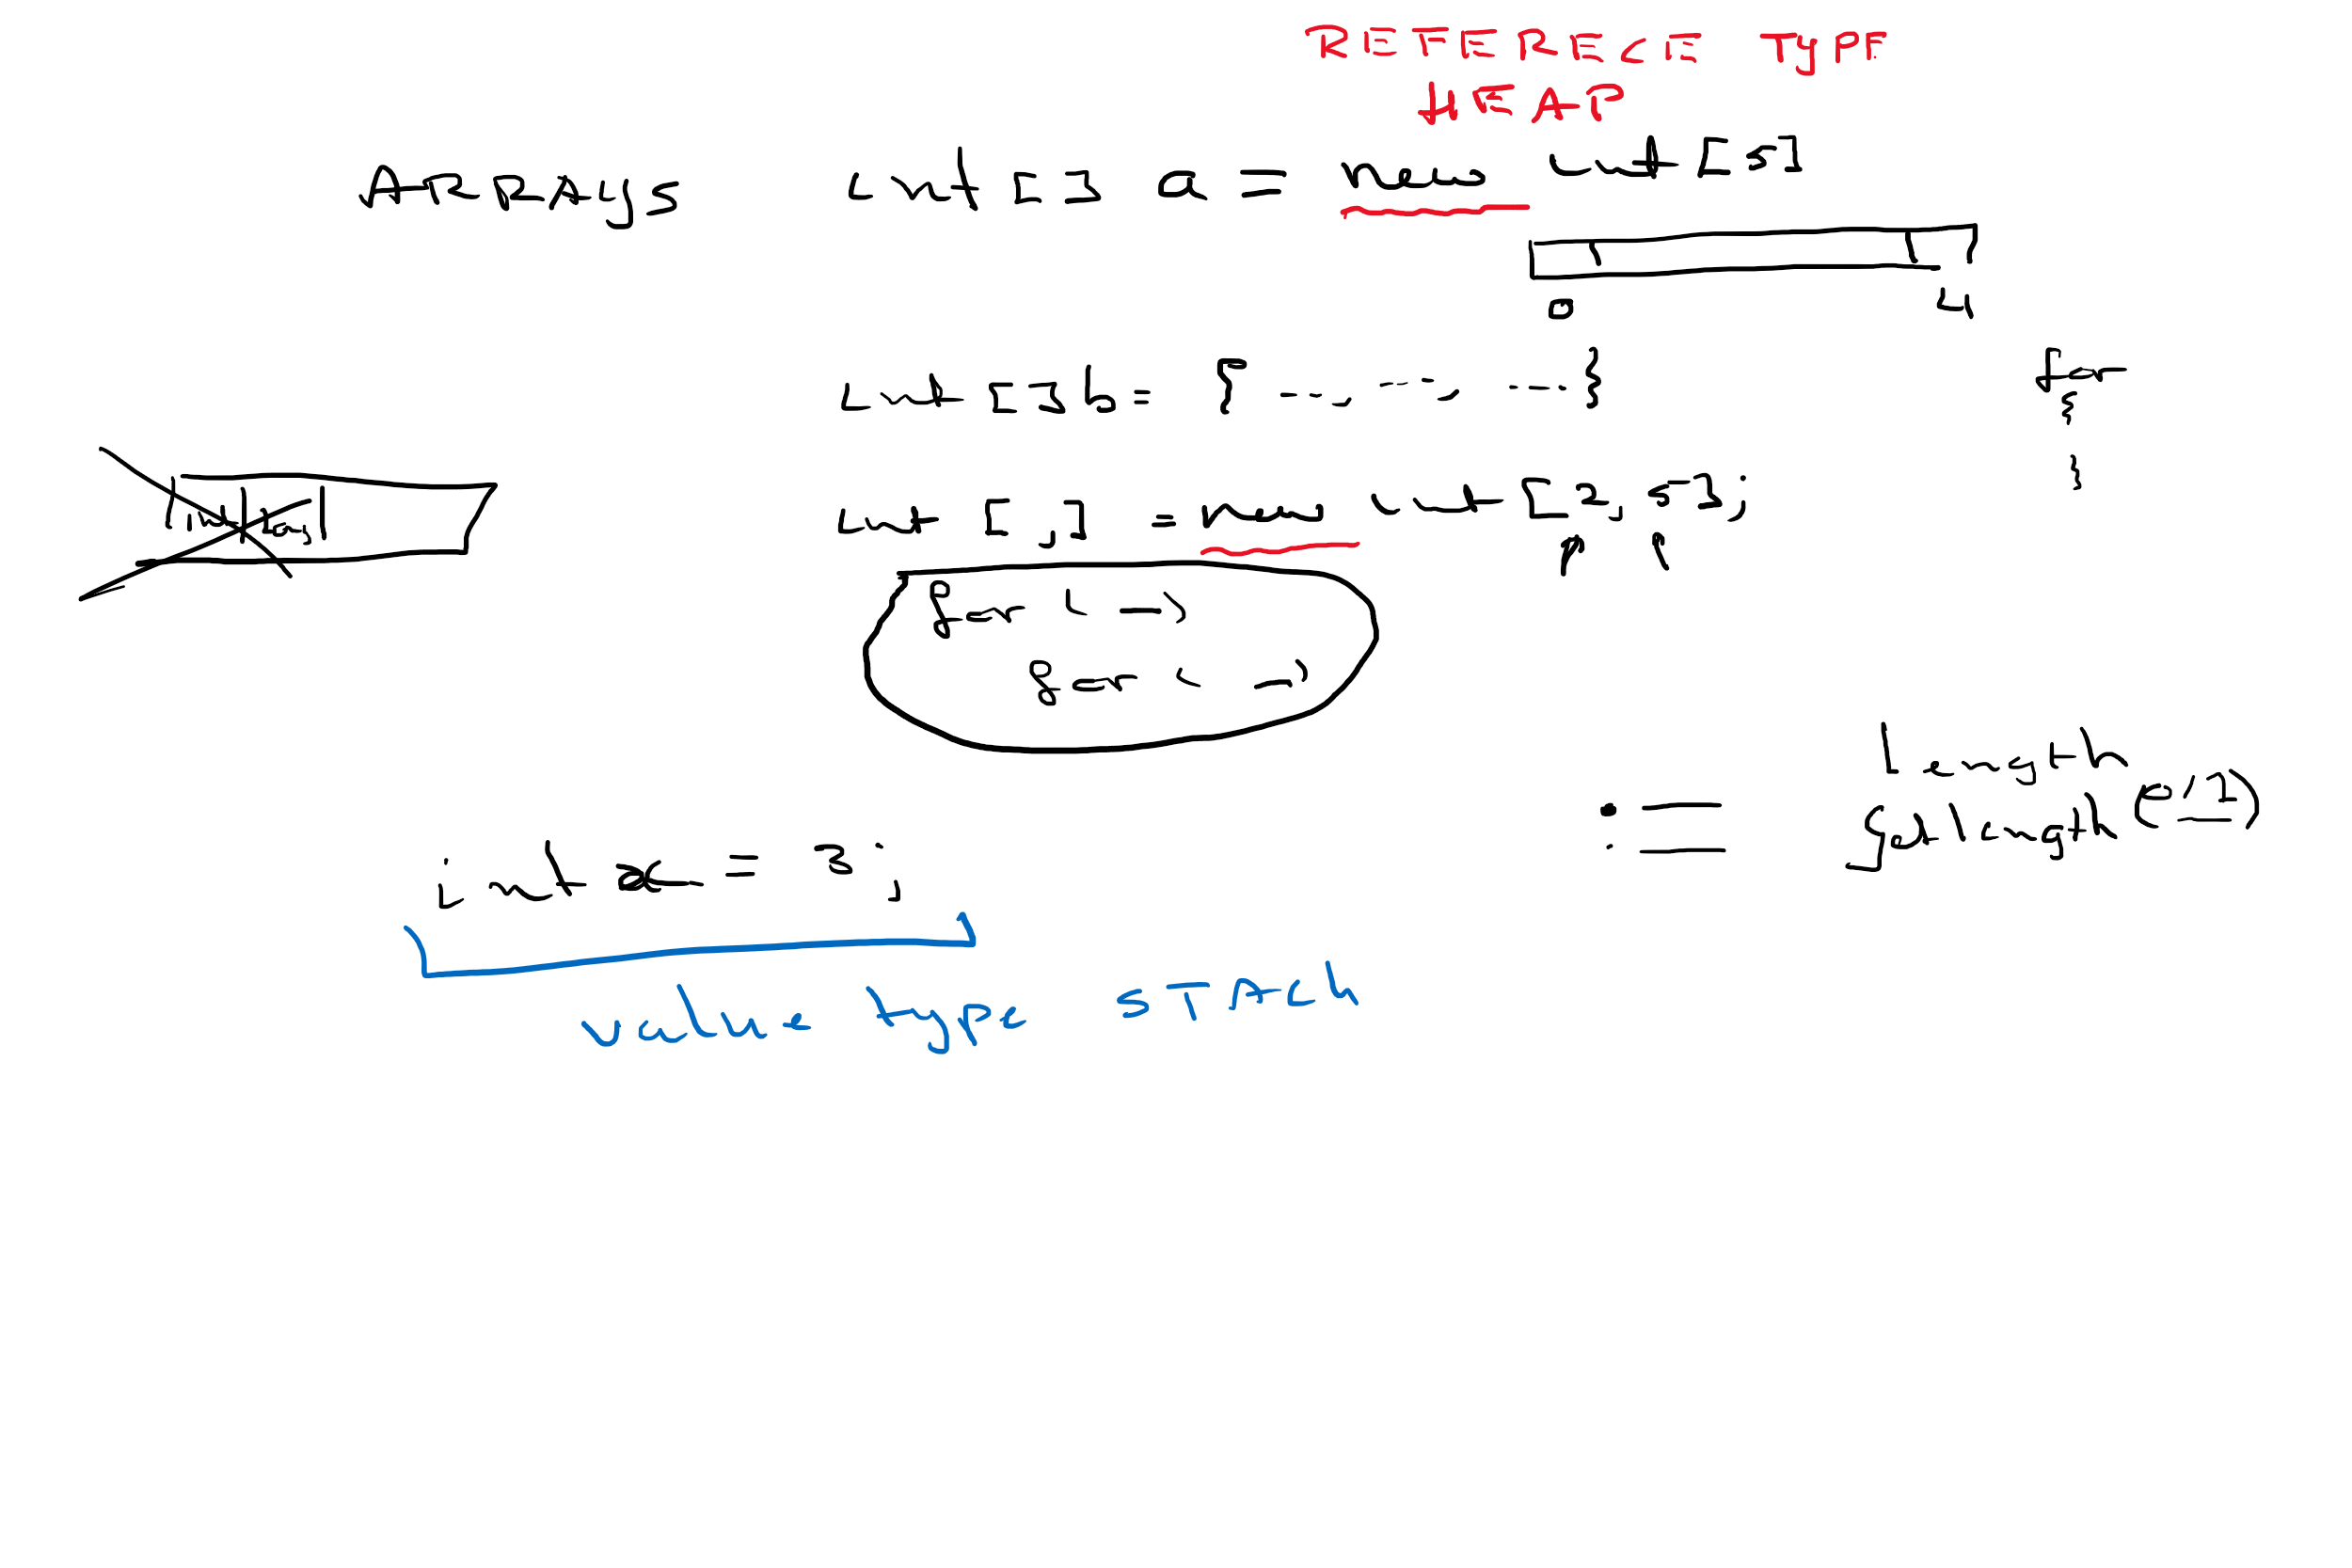 REFERECE TYPE
HEAP
ARRAys int [ ] a = new int [5]
0 4
int [ ] b = { ---, ---, --- }
for
{
}
int [ , ] = new int [2,5];
for ( — )
for ( — )
length
getlength(0/1)
int x = 3;
value type STACk